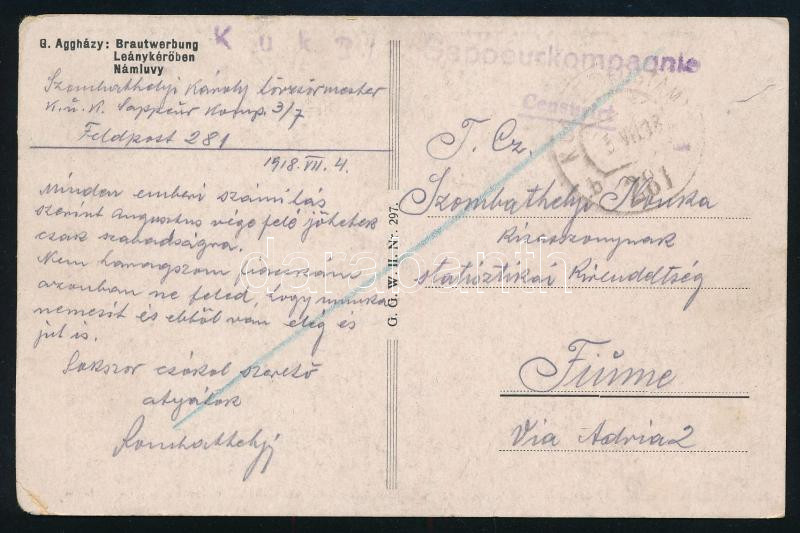 G. Aggházy: Brautwerbung
Leánykérőben
Námluvy
K. u. k.
Sappeurkompagnie
Censuriert
Szombathelyi Károly törzsőrmester
K.u.K. Sappeur Komp. 3/7
Feldpost 281
1918. VII. 4.
Minden emberi számitás
szerint augusztus vége felé jöhetek
csak szabadságra.
Nem haragszom fiacskám
azonban ne feled, hogy munka
nemesít és ebből van elég és
jut is.
Sokszor csókol szerető
atyátok
Szombathelyi
G. G. W. II. Nr. 297.
T. Cz.
Szombathelyi
Kisasszonynak
statisztikai Kirendeltség
Fiume
Via Adria 2
darabanth